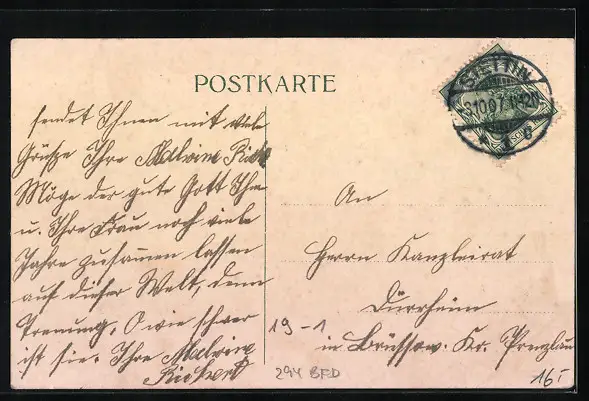 POSTKARTE
STETTIN
3.10.07. 11-12N
1 b
sendet Ihnen mit viele
Grüsze Ihre Malwine Rick
Möge der gute Gott Ihn
u. Ihre Frau noch viele
Jahre zusammen lassen
auf dieser Welt, denn
Trenung, O wie schwer
ist sie. Ihre Malwine
Rickert
An
Herrn Kanzleirat
Dürrheim
in Brüssow. Kr. Prenzlau
19-1
294 BFD
16,-